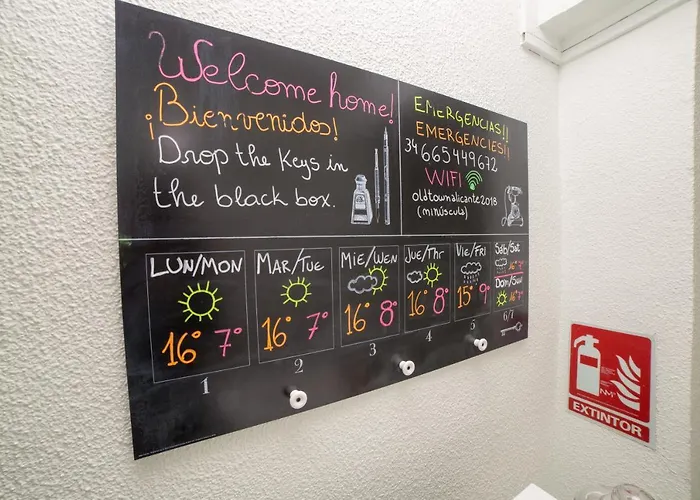 Welcome home!
¡Bienvenidos!
Drop the keys in
the black box.
EMERGENCIAS!!
EMERGENCIES!!
34 665449672
WIFI
oldtownalicante2018
(minúscula)
LUN/MON
16° 7°
1
MAR/TUE
16° 7°
2
MIE/WEN
16° 8°
3
JUE/Thr
16° 8°
4
VIE/FRI
15° 9°
5
Sáb/Sat
16° 7°
Dom/Sun
16° 7°
6/7
EXTINTOR